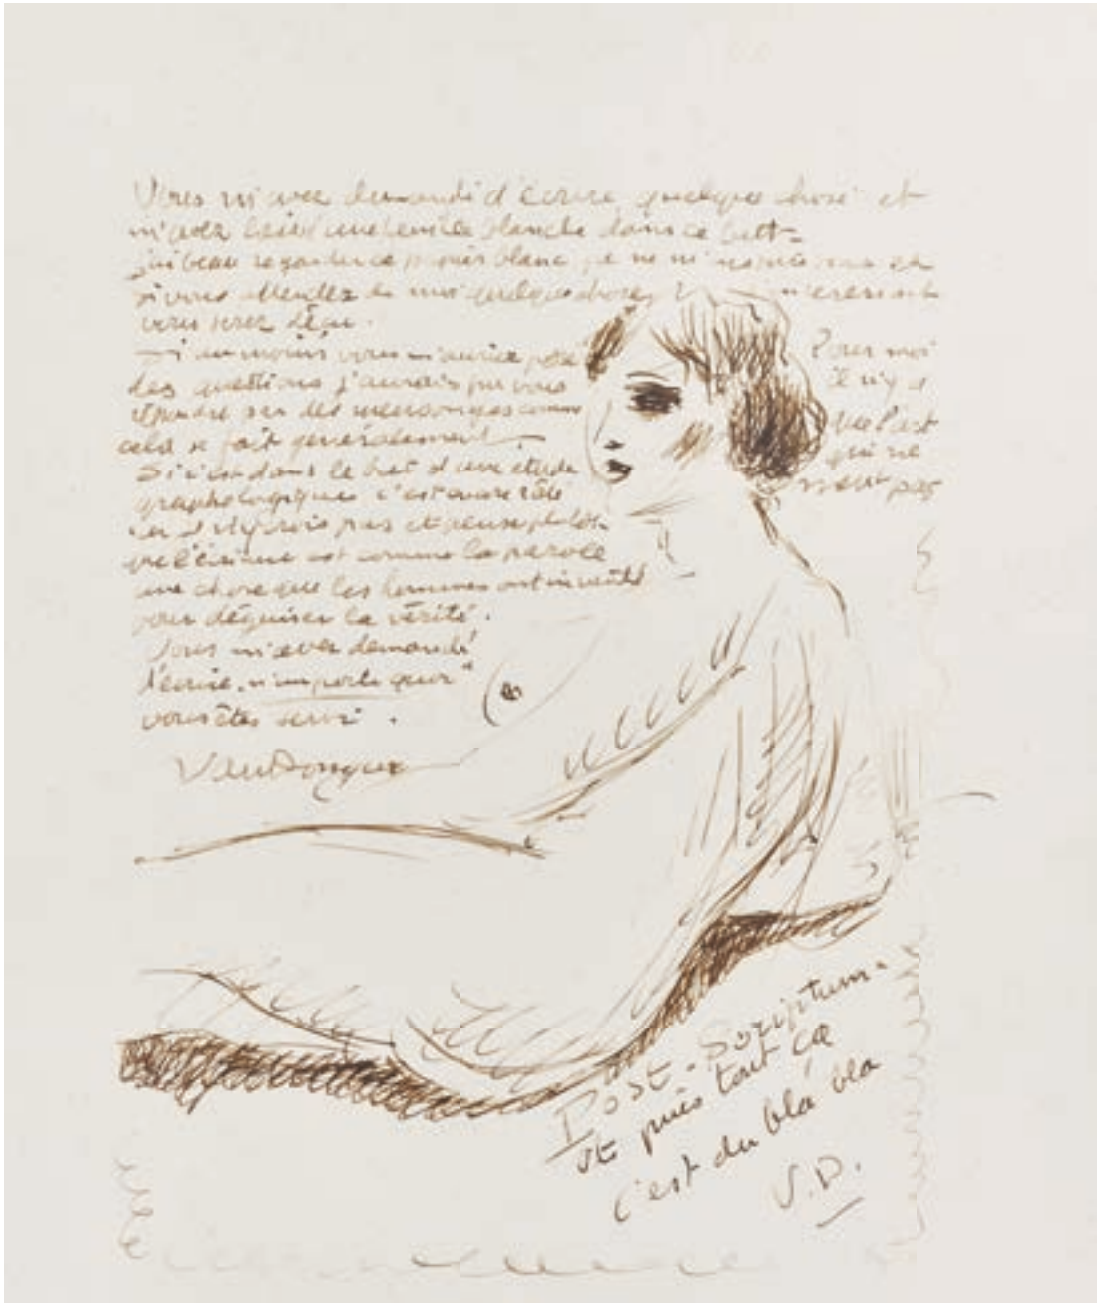 Vous m'avez demandé d'écrire quelque chose et
m'avez laissé une feuille blanche dans ce but -
j'ai beau regarder ce papier blanc je ne et
si vous attendez de moi quelque chose
vous serez déçu.
Si au moins vous m'auriez posé
des questions j'aurais pu vous
répondre par des mensonges comme
cela se fait généralement -
Si c'est dans le but d'une étude
graphologique c'est encore raté
car j'y crois pas et pense plutôt
que l'écriture est comme la parole
une chose que les hommes ont inventé
pour déguiser la vérité.
Vous m'avez demandé
d'écrire "n'importe quoi"
vous êtes servi.
Van Dongen
Pour moi
il n'y a
que l'art
qui ne
ment pas
Post-Scriptum.
et puis tout ça
c'est du bla bla
V.D.